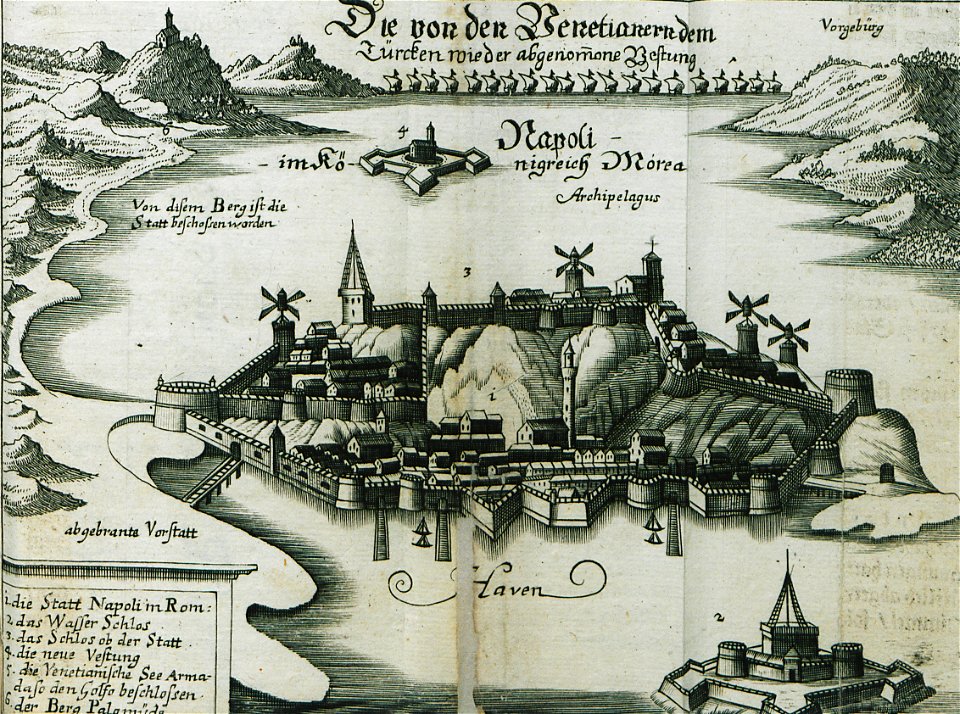 Die von den Venetianern dem
Türcken wieder abgenom̄one Vestung
Vorgebürg
4
Napoli -
- im Kö nigreich Morea
Archipelagus
6
Von disem Berg ist die
Statt beschossen worden
3
1
abgebrante Vorstatt
Haven
2
1. die Statt Napoli in Rom:
2. das Wasser Schlos
3. das Schlos ob der Statt
4. die neue Vestung
5. die Venetianische See Arma-
daso den Golfo beschlossen.
6. der Berg Palamüda